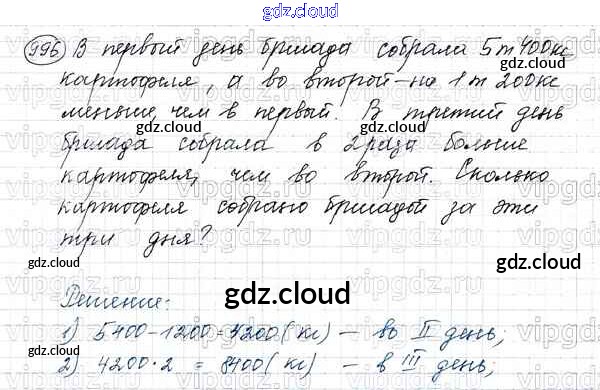 gdz.cloud
996 В первый день бригада собрала 5т 400кг
картофеля, а во второй – на 1т 200кг
gdz.cloud
меньше, чем в первый. В третий день
gdz.cloud
бригада собрала в 2 раза больше
картофеля, чем во второй. Сколько
gdz.cloud
картофеля собрано бригадой за эти
три дня?
gdz.cloud
gdz.cloud
gdz.cloud
Решение:
1) 5400-1200=4200(кг) – во II день;
gdz.cloud
2) 4200·2 = 8400(кг) – в III день;